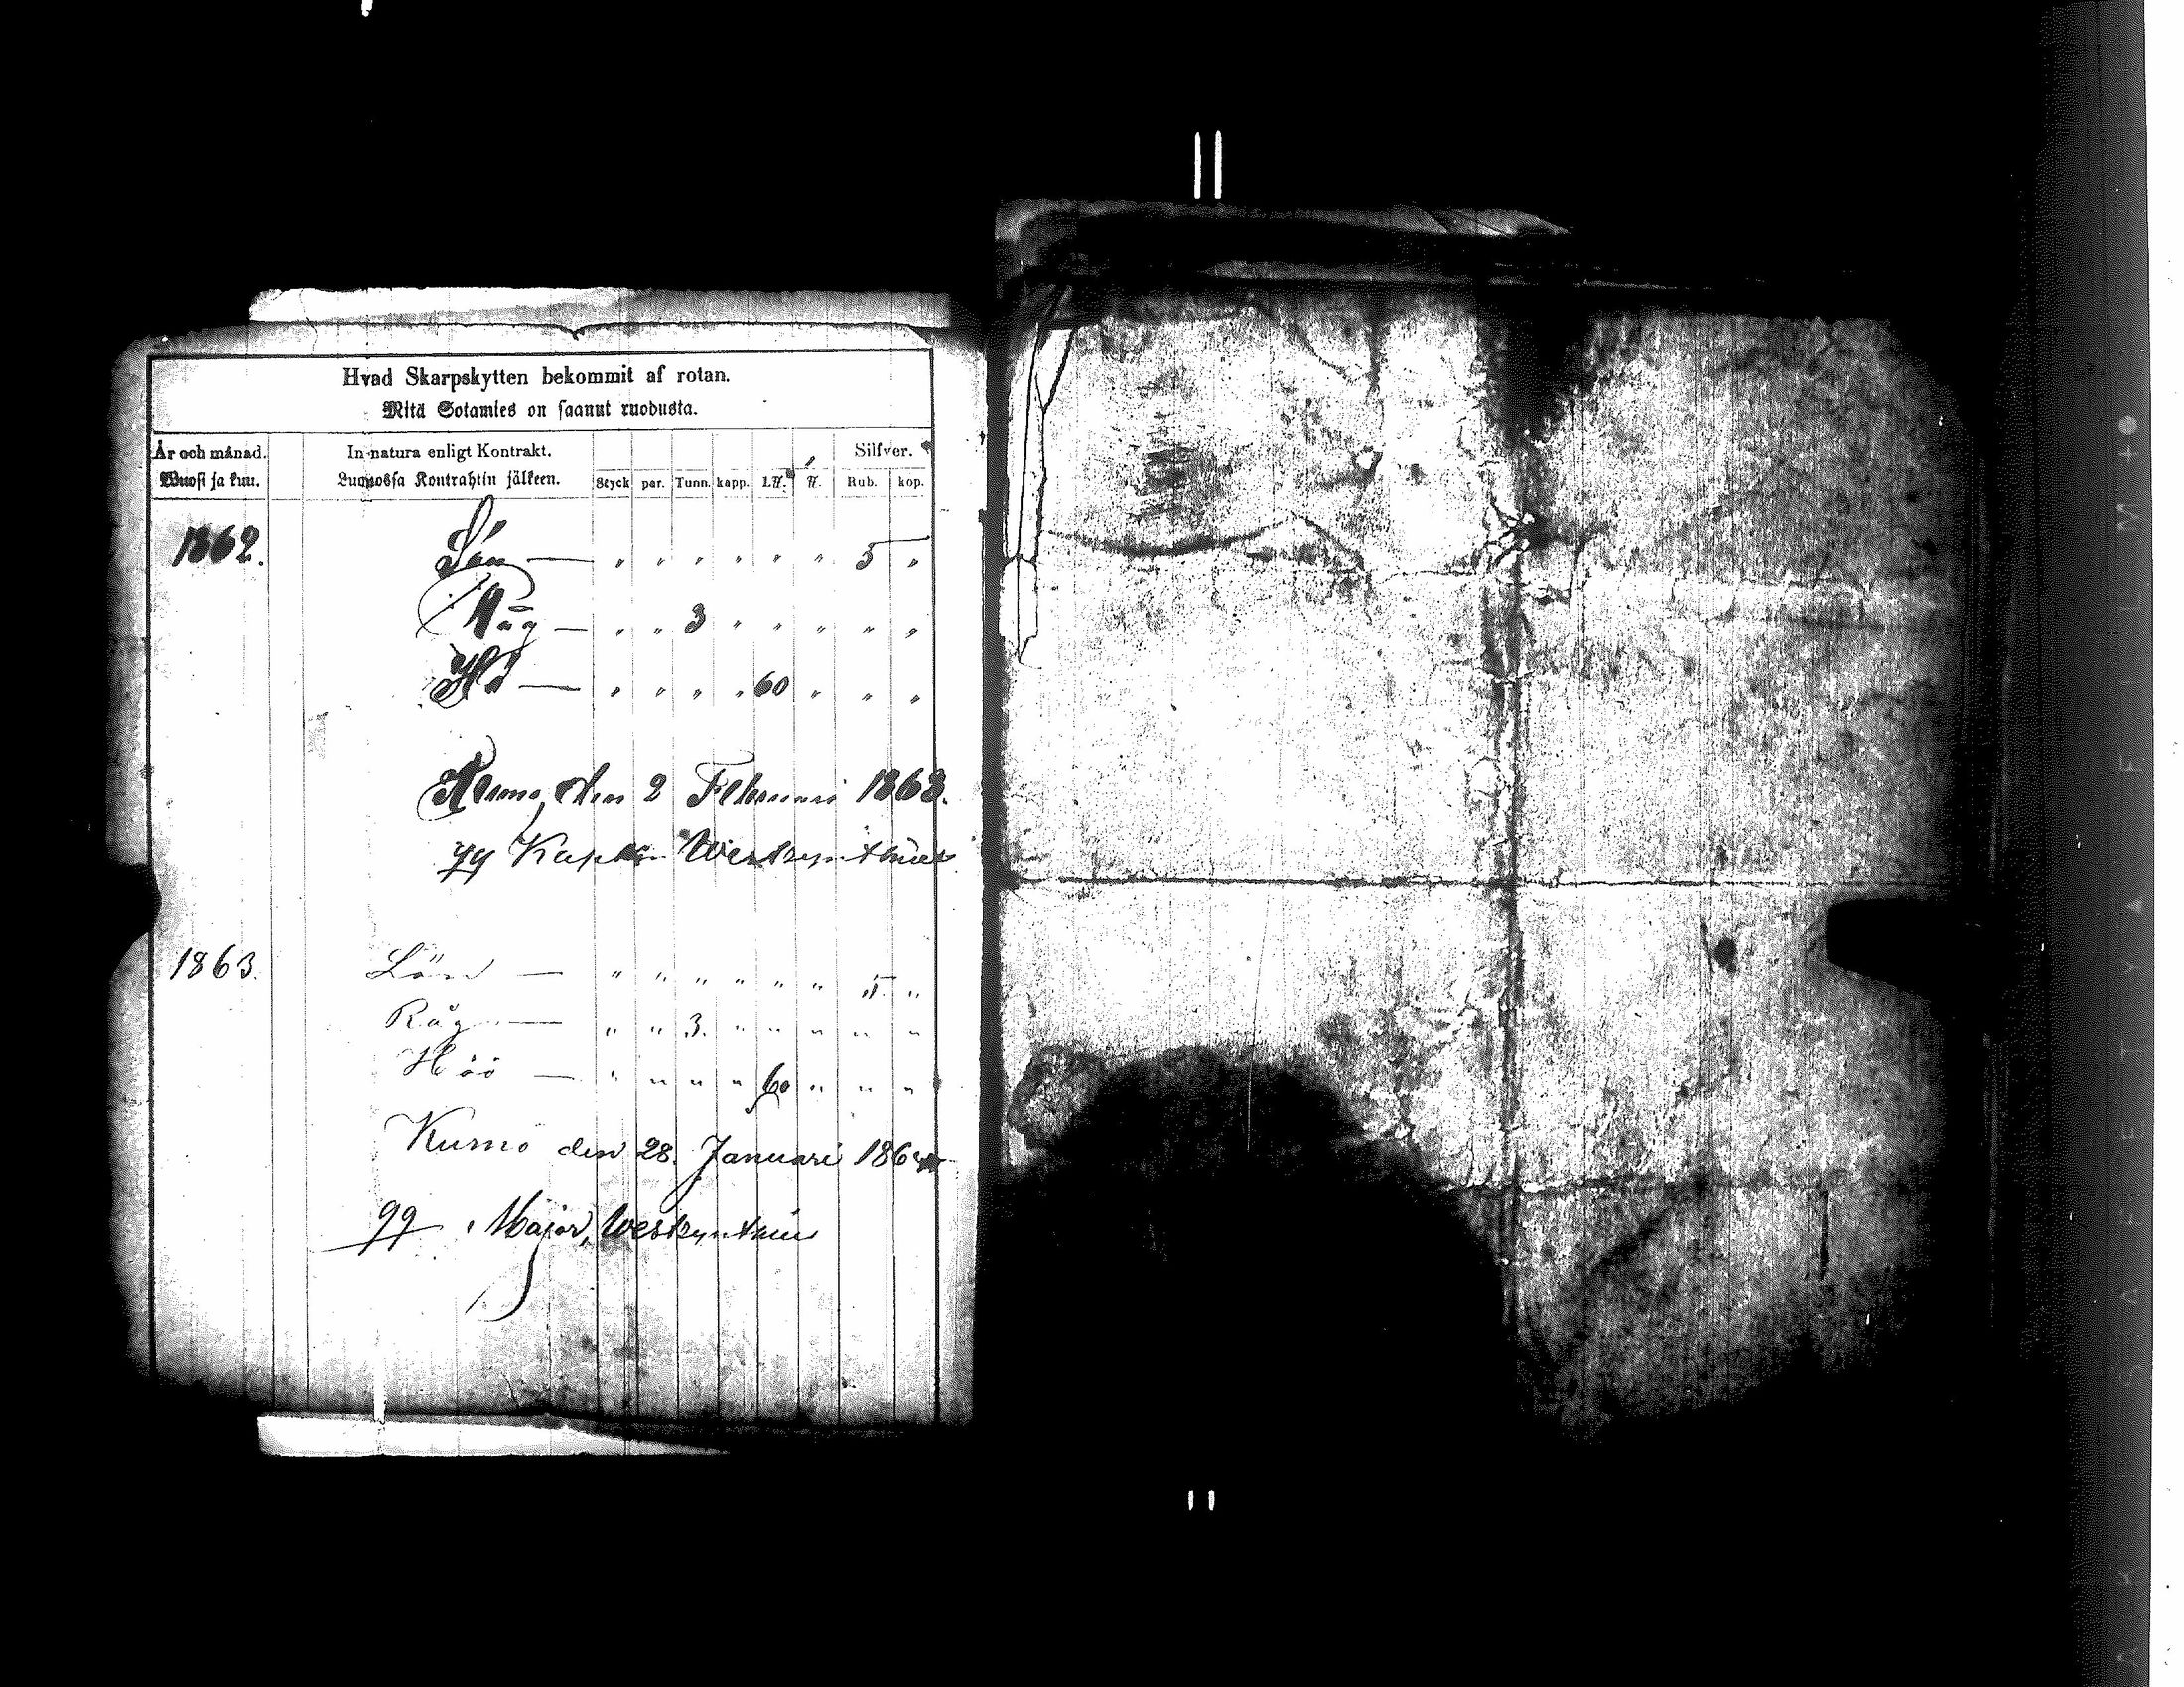 Hvad Skarpskytten bekommit af rotan.
Mitä Sotamies on saanut ruodusta.
År och månad. In natura enligt Kontrakt. Silfver.
Wuosi ja kuu. Luonossa Kontrahtin jälkeen. Styck par. Tunn. kapp. L℔. ℔. Rub. kop.
1862. Lön — " " " " " " 5 "
Råg — " " 3 " " " " "
Hö — " " " " 60 " " "
Kumo, den 2 Februari 1863.
gg Kapten Westzynthius
1863. Lön — " " " " " " 5 "
Råg — " " 3. " " " " "
Höö — " " " " 60 " " "
Kumo den 28. Januari 1864
gg Major, Westzynthius